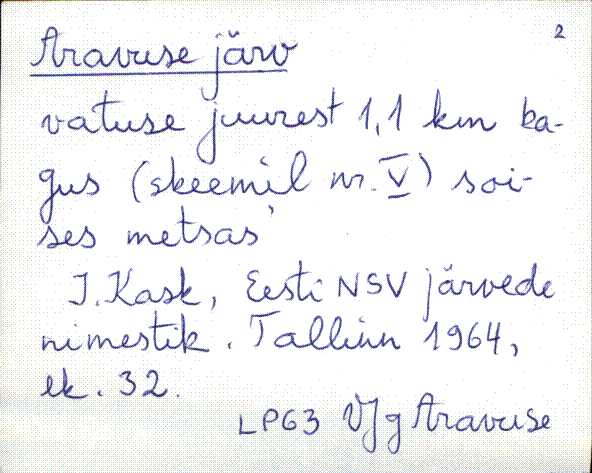 2
Aravuse järv
vatuse juurest 1,1 km ka-
gus (skeemil nr. V) soi-
ses metsas'
I. Kask, Eesti NSV järvede
nimestik. Tallinn 1964,
lk. 32.
LP63 VJg Aravuse